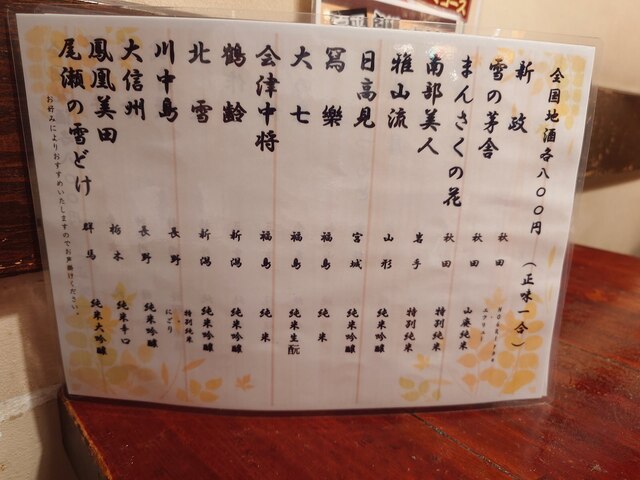 全国地酒各八〇〇円 (正味一合)
新政 秋田 エクリュ
雪の茅舎 秋田 山廃純米
まんさくの花 秋田 特別純米
南部美人 岩手 特別純米
雅山流 山形 純米吟醸
日高見 宮城 純米吟醸
寫樂 福島 純米
大七 福島 純米生酛
会津中将 福島 純米
鶴齢 新潟 純米吟醸
北雪 新潟 純米吟醸
川中島 長野 特別純米 にごり
大信州 長野 純米吟醸
鳳凰美田 栃木 純米辛口
尾瀬の雪どけ 群馬 純米大吟醸
お好みによりおすすめいたしますのでお声掛けください。